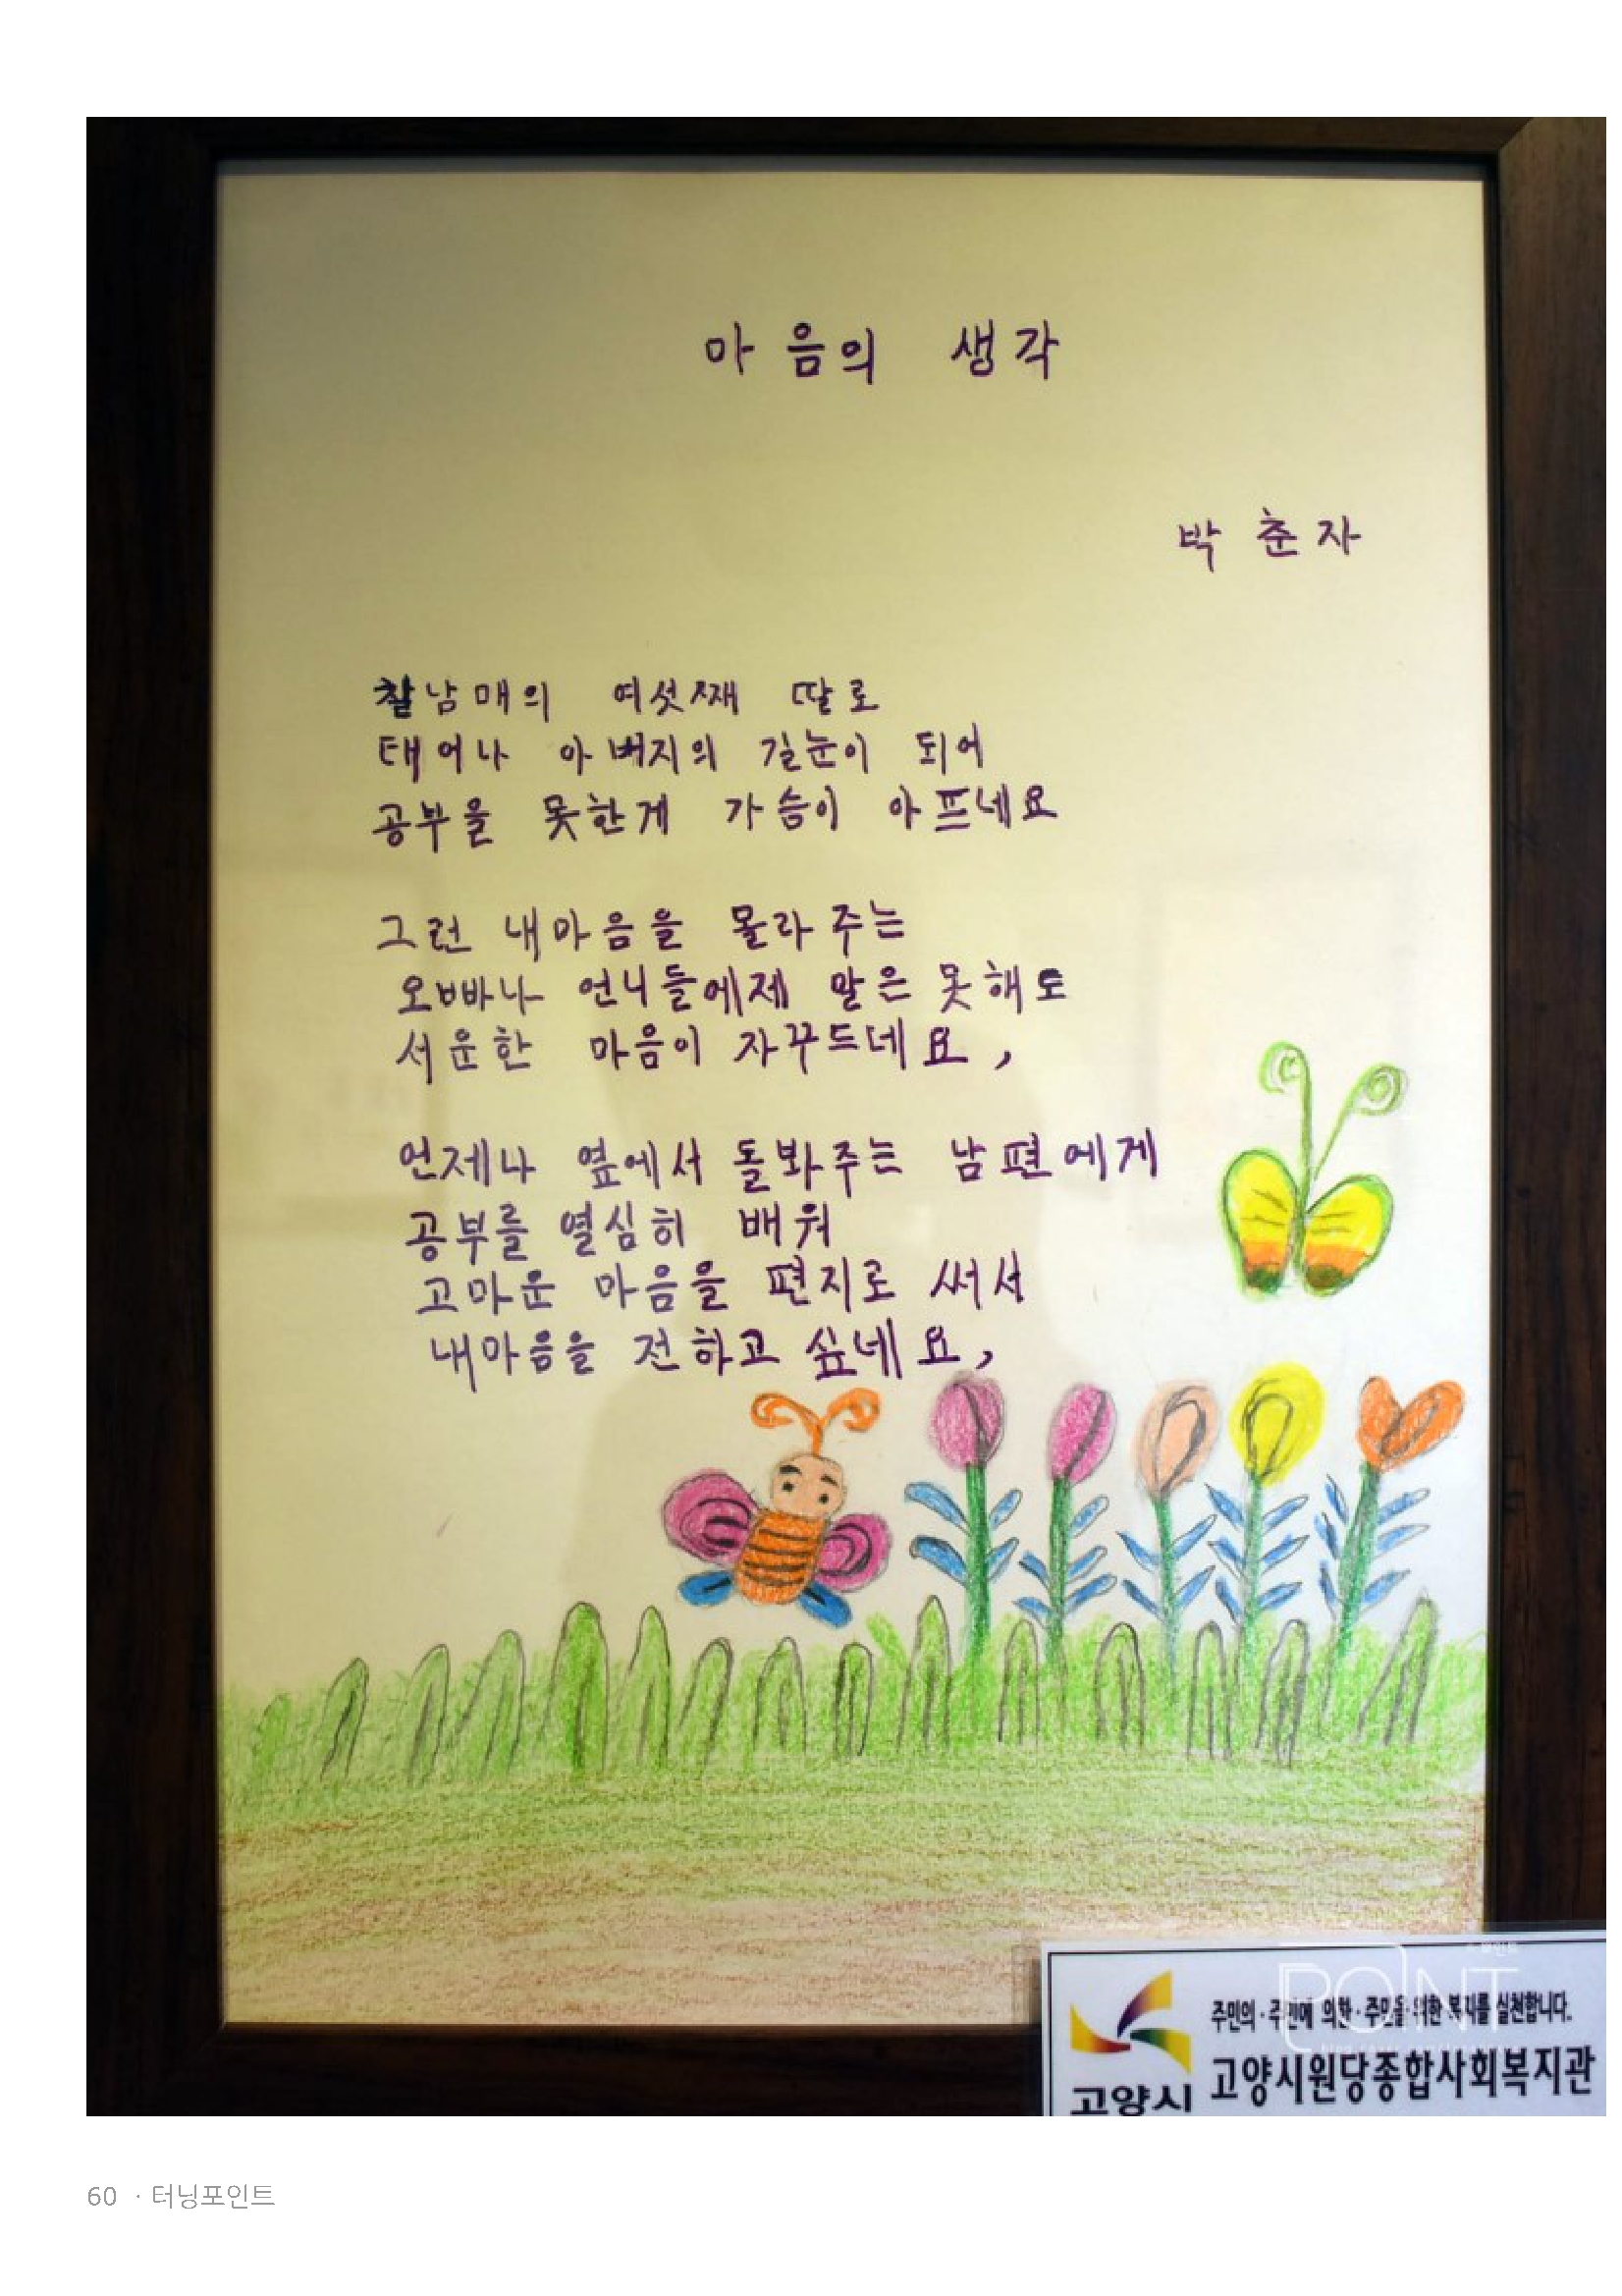 마음의 생각
박춘자
칠남매의 여섯째 딸로
태어나 아버지의 길눈이 되어
공부을 못한게 가슴이 아프네요
그런 내마음을 몰라주는
오빠나 언니들에제 말은 못해도
서운한 마음이 자꾸드네요,
언제나 옆에서 돌봐주는 남편에게
공부를 열심히 배워
고마운 마음을 편지로 써서
내마음을 전하고 싶네요,
POINT
주민의·주민에 의한·주민을 위한 복지를 실천합니다.
고양시 고양시원당종합사회복지관
60 · 터닝포인트